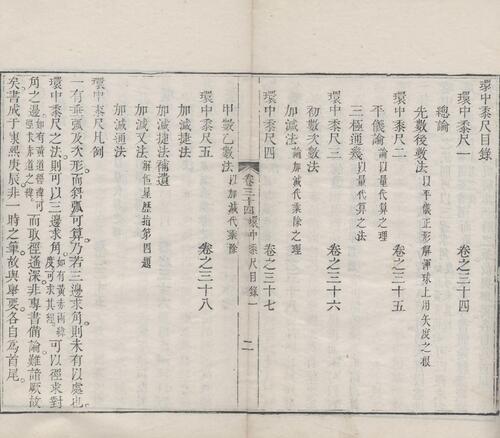 環中黍尺目錄
環中黍尺一　卷之三十四
總論
先數後數法以平儀正形解渾球上用矢度之根
環中黍尺二　卷之三十五
平儀論論以量代算之理
三極通幾以量代算之法
環中黍尺三　卷之三十六
初數次數法
加減法論加減代乘除之理
環中黍尺四　卷之三十七
甲數乙數法以加減代乘除
卷三十四環中黍尺目錄一　二
環中黍尺五　卷之三十八
加減捷法
加減捷法補遺
加減又法解恆星歷指第四題
加減通法
環中黍尺凡例
一有垂弧及次形而斜弧可算乃若三邊求角則未有以處也
環中黍尺之法則可以三邊求角如有黃赤兩緯度可求其經可以徑求對
角之邊如有黃道經緯可徑求赤道之緯而取徑遙深非專書備論難諳厥故
矣書成于康熙庚辰非一時之筆故與舉要各自為首尾